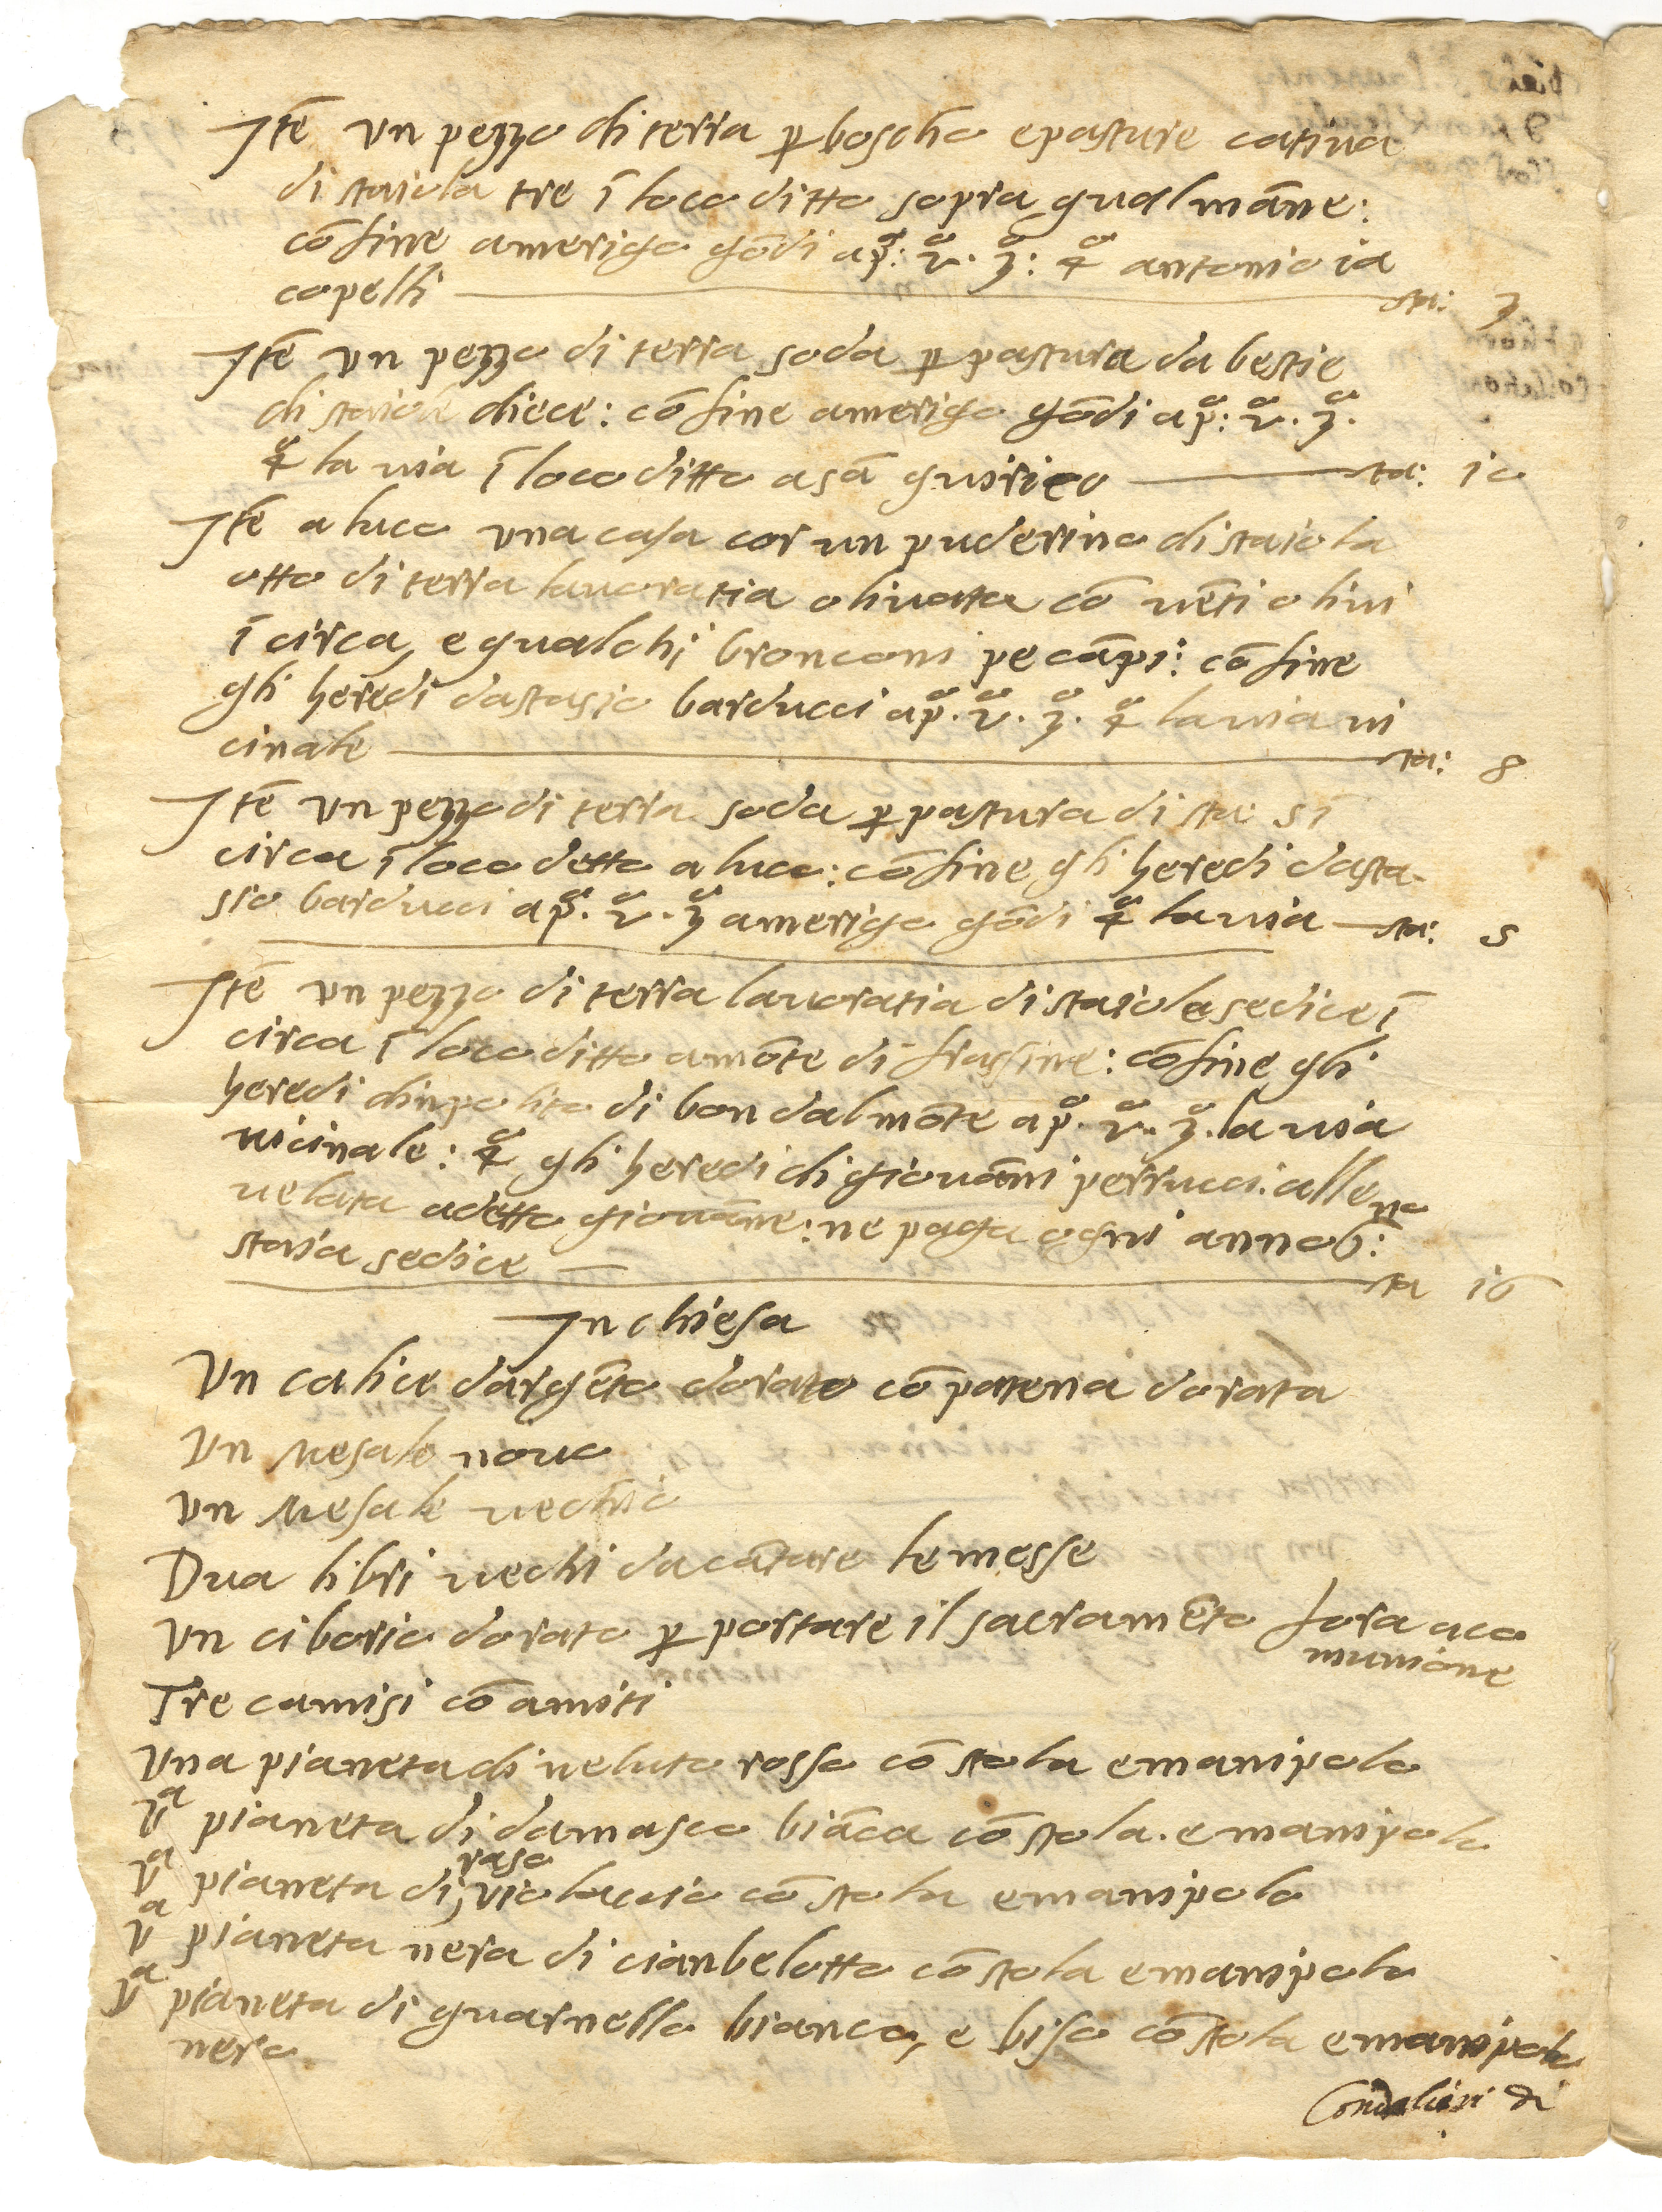 Itē vn pezzo di terra p boscho epasture catiua
di staiola tre ī loco ditto sopra gualmāne:
cōfine amerigo gōdi a pº: 2º. 3º: 4º antonio ia
copelli sta: 3
Itē vn pezzo di terra soda p pastura da bestie
di staiole diece: cōfine amerigo gōdi a pº: 2º. 3º.
4º la uia ī loco ditto a sā quirico sta: 10
Itē a luco vna casa cor un puderino di staiola
otto di terra lauoratia oliuata cō uēti oliui
ī circa, e qualchi bronconi pe cāpi: cōfine
gli heredi dastasio barducci a pº. 2º. 3º. 4º la uia ui
cinale sta: 8
Itē vn pezzo di terra soda p pastura di sta 5 ī
circa ī loco detto a luco: cōfine gli heredi dasta-
sio barducci a pº. 2º. 3º amerigo gōdi 4º la uia sta: 5
Itē vn pezzo di terra lauoratia di staiola sedice ī
circa ī loco ditto a mōte di frassine: cōfine gli
heredi dinpolito di bondalmōte a pº. 2º. 3º. la uia
uicinale: 4º gli heredi di giouāni perrucci. alle na
uelata adetto giouāne: ne paga ogni anno G:
staia sedice sta 16
In chiesa
Vn calice dargēto dorato cō patena dorata
Vn Mesale nouo
Vn Mesale uechio
Dua libri uechi da cātare le messe
Vn ciborio dorato p portare il sacramēto fora a co
munione
Tre camisi cō amiti
Vna pianeta di ueluto rosso cō stola e manipolo
Vª pianeta di damasco biāca cō stola. e manipolo
Vª pianeta di raso violaccio cō stola e manipolo
Vª pianeta nera di cianbelotto cō stola e manipolo
Vª pianeta di guarnello bianco, e biso cō stola e manipolo
nero
di